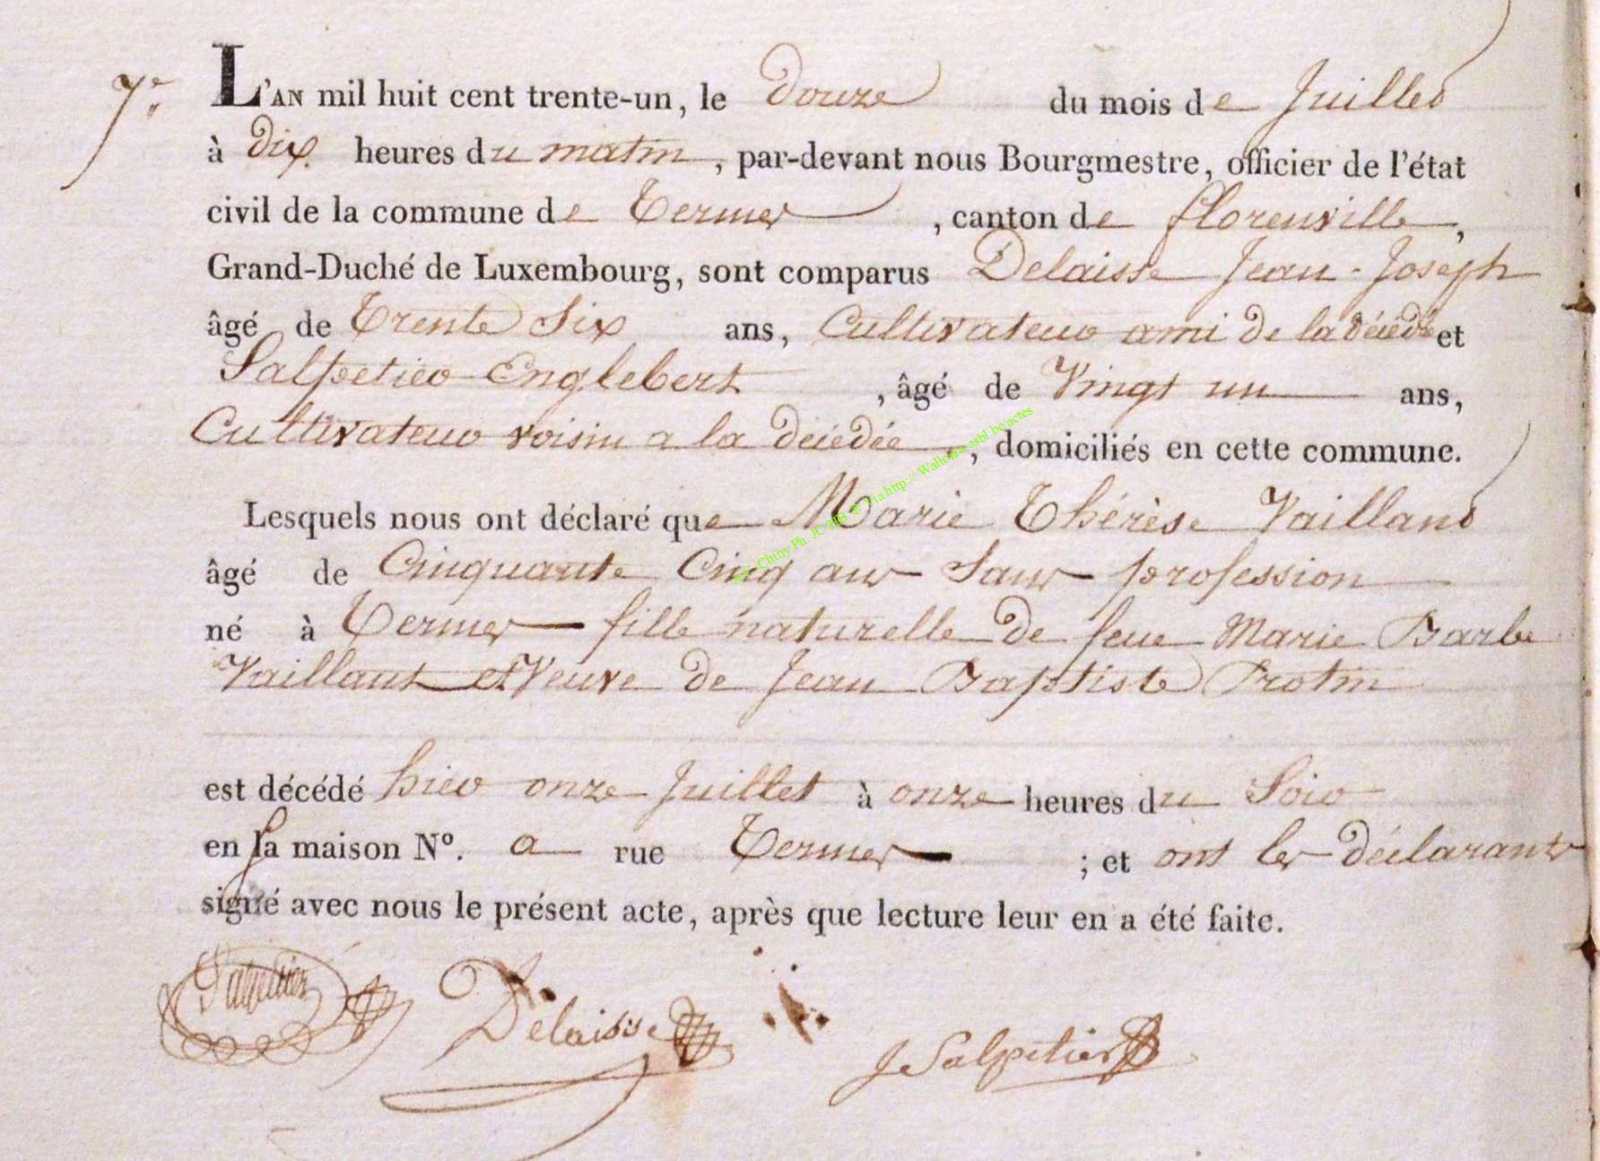 7e.
L'AN mil huit cent trente-un, le douze du mois de Juillet
à dix heures du matin, par-devant nous Bourgmestre, officier de l'état
civil de la commune de Termes, canton de florenville,
Grand-Duché de Luxembourg, sont comparus Delaisse Jean-Joseph
âgé de Trente Six ans, Cultivateur ami de la décédée et
Salpetier Englebert, âgé de Vingt un ans,
Cultivateur voisin a la décédée, domiciliés en cette commune.
Lesquels nous ont déclaré que Marie Thérèse Vaillant
âgé de Cinquante Cinq ans Sans profession
né à Termes fille naturelle de feue Marie Barbe
Vaillant et Veuve de Jean Baptiste Protin
est décédé hier onze Juillet à onze heures du Soir
en sa maison N°. a rue Termes ; et ont les déclarants
signé avec nous le présent acte, après que lecture leur en a été faite.
Salpetier Delaisse J Salpetier